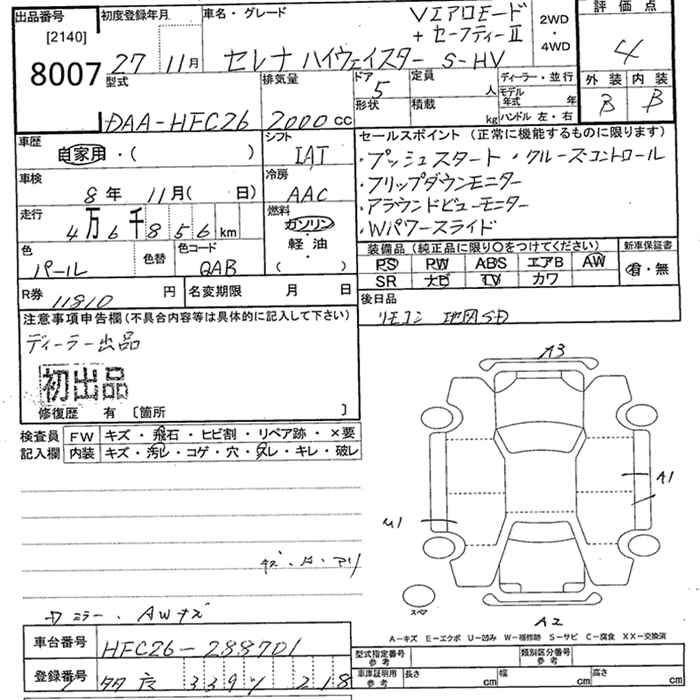 出品番号 初度登録年月 車名・グレード Vエアロモード 2WD・4WD 評価点
[2140] + セーフティーII
8007 27 11月 セレナ ハイウェイスター S-HV 4
型式 排気量 ドア 定員 人 ディーラー・並行 外装 内装
5 モデル年式 年 B B
DAA-HFC26 2000cc 形状 積載 kg ハンドル 左・右
車歴 シフト セールスポイント (正常に機能するものに限ります)
自家用・( ) IAT ・プッシュスタート ・クルーズコントロール
車検 冷房 ・フリップダウンモニター
8年 11月( 日) AAC ・アラウンドビューモニター
走行 燃料 ・Wパワースライド
4万6千856km ガソリン
色 色替 色コード 軽油 装備品 (純正品に限り○をつけてください) 新車保証書
パール QAB ( ) PS PW ABS エアB AW 有・無
SR ナビ TV カワ
R券 11810円 名変期限 月 日 後日品
注意事項申告欄 (不具合内容等は具体的に記入して下さい) リモコン 地図SD
ディーラー出品
初出品
修復歴 有 〔箇所 〕
A3
検査員 FW キズ・飛石・ヒビ割・リペア跡・×要
記入欄 内装 キズ・汚レ・コゲ・穴・スレ・キレ・破レ
A1
U1
スペア
A2
ミラー・AWキズ
A-キズ E-エクボ U-凹み W-補修跡 S-サビ C-腐食 XX-交換済
車台番号 HFC26-288701 型式指定番号 参考 類別区分番号 参考
登録番号 339 218 車庫証明用 参考 長さ cm 幅 cm 高さ cm